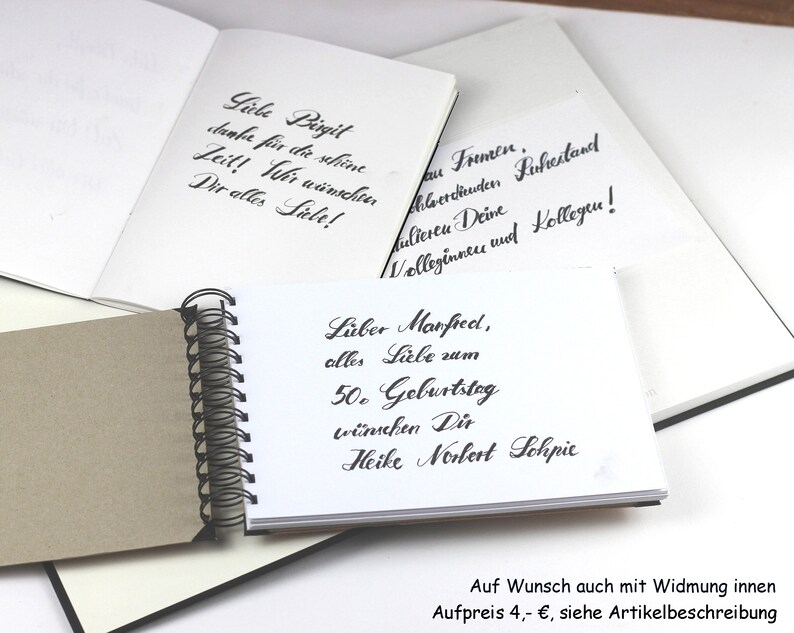 Liebe Birgit
danke für die schöne
Zeit! Wir wünschen
Dir alles Liebe!
Ruhestand
Deine
Kolleginnen und Kollegen!
Lieber Manfred,
alles Liebe zum
50. Geburtstag
wünschen Dir
Heike Norbert Sohpie
Auf Wunsch auch mit Widmung innen
Aufpreis 4,- €, siehe Artikelbeschreibung